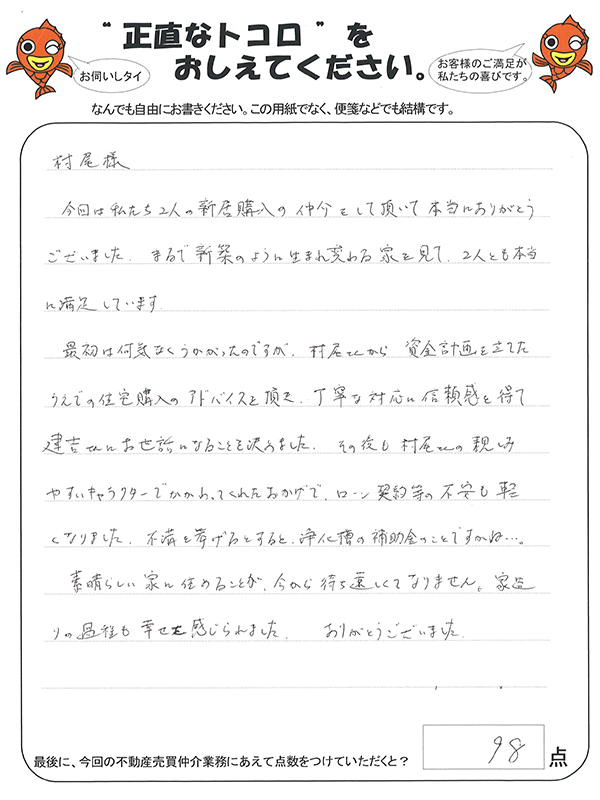 “正直なトコロ”を
おしえてください。
お伺いしタイ
お客様のご満足が
私たちの喜びです。
なんでも自由にお書きください。この用紙でなく、便箋などでも結構です。
村尾様
今回は私たち2人の新居購入の仲介をして頂いて本当にありがとう
ございました。まるで新築のように生まれ変わる家を見て、2人とも本当
に満足しています。
最初は何気なくうかがったのですが、村尾さんから資金計画を立てた
うえでの住宅購入のアドバイスを頂き、丁寧な対応に信頼感を得て
建吉さんにお世話になることを決めました。その後も村尾さんの親しみ
やすいキャラクターでかかわってくれたおかげで、ローン契約等の不安も軽
くなりました。不満を挙げるとすると、浄化槽の補助金のことですかね…。
素晴らしい家に住めることが、今から待ち遠しくてなりません。家造
りの過程も幸せを感じられました。 ありがとうございました。
最後に、今回の不動産売買仲介業務にあえて点数をつけていただくと？ 98 点